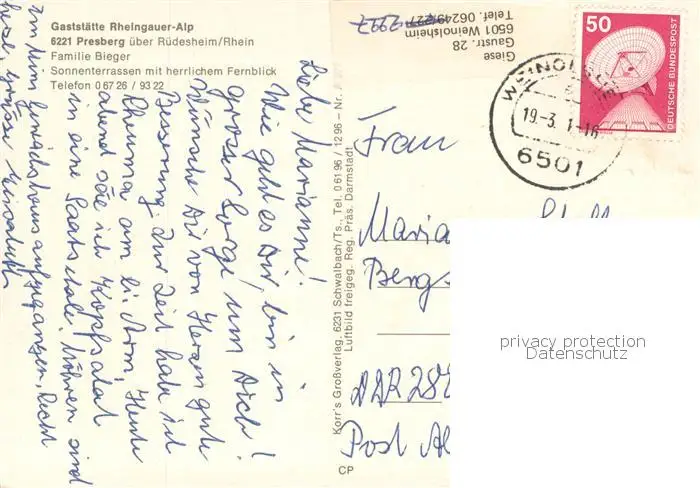 Gaststätte Rheingauer-Alp
6221 Presberg über Rüdesheim/Rhein
Familie Bieger
Sonnenterrassen mit herrlichem Fernblick
Telefon 0 67 26 / 93 22
Liebe Marianne!
Wie geht es Dir, bin in
grosser Sorge um Dich!
Wünsche Dir von Herzen gute
Besserung. Zur Zeit habe ich
Rheuma am li. Arm, Heute
abend säe ich Kopfsalat
in eine Saatschale. Möhren sind
im Gewächshaus aufgegangen, Recht
herzl. Grüsse Elisabeth
Korr's Großverlag, 6231 Schwalbach/Ts., Tel. 0 61 96 / 12 96 - Nr.
Luftbild freigeg. Reg. Präs. Darmstadt
CP
Giese
Gaustr. 28
6501 Weinolsheim
Telef. 06249/227
7997
50
DEUTSCHE BUNDESPOST
19.-3. 1-16
6501
Frau
Maria
Bergs
DDR 28
Post Al
privacy protection
Datenschutz